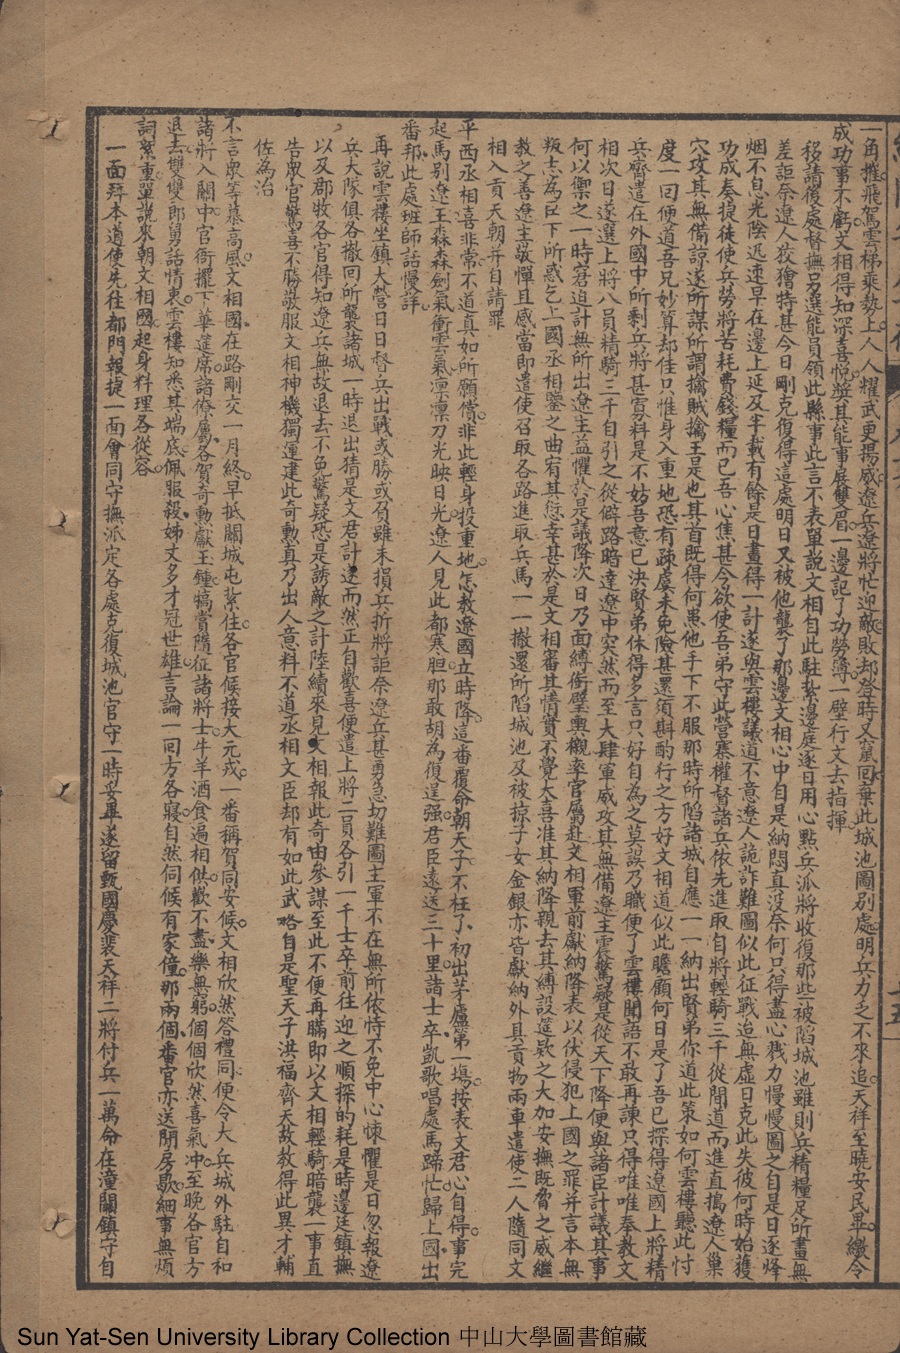 一角摧飛駕雲梯乘勢上人人耀武更揚威遼兵遼將忙迎敵敗却登時又鼠回棄此城池圖別處明兵力乏不來追天祥至曉安民畢繳令
成功事不虧文相得知深喜悅獎其能事展雙眉一邊記了功勞簿一壁行文去指揮
移請後處督撫另選能員領此縣事此言不表單說文相自此駐紮邊庭逐日用心點兵派將收復那些被陷城池雖則兵精糧足所畫無
差詎奈遼人狡獪特甚今日剛克復得這處明日又被他襲了那邊文相心中自是納悶真没奈何只得盡心戮力慢慢圖之自是日逐烽
烟不息光陰迅速早在邊上延及半載有餘是日畫得一計遂與雲樓議道不意遼人詭詐難圖似此征戰迨無虛日克此失彼何時始獲
功成奏捷徒使兵勞將苦耗費錢糧而已吾心焦甚今欲使吾弟守此營寨權督諸兵依先進取自將輕騎三千從間道而進直搗遼人巢
穴攻其無備諒遂所謀所謂擒賊擒王是也其首既得何患他手下不服那時所陷諸城自應一一納出賢弟你道此策如何雲樓聽此忖
度一回便道吾兄妙算却佳只惟身入重地恐有疎虞未免險甚還須斟酌行之方好文相道似此瞻顧何日是了吾已探得遼國上將精
兵齊遣在外國中所剩兵將甚寡料是不妨吾意已決賢弟休得多言只好自為之莫誤乃職便了雲樓聞語不敢再諫只得唯唯奉教文
相次日遂選上將八員精騎三千自引之從僻路暗達遼中突然而至大肆軍威攻其無備遼主震驚疑是從天下降便與諸臣計議其事
何以禦之一時窘迫計無所出遼主益懼於是議降次日乃面縛銜璧輿櫬率官屬赴文相軍前獻納降表以伏侵犯上國之罪并言本無
叛志為臣下所惑乞上國丞相鑒之曲宥其愆幸甚於是文相審其情實不覺大喜准其納降親去其縛設筵欵之大加安撫既脅之威繼
教之善遼主敬憚且感當即遣使召取各路進取兵馬一一撤還所陷城池及被掠子女金銀亦皆獻納外具貢物兩車遣使二人隨同文
相入貢天朝并自請罪
平西丞相喜非常不道真如所願償非此輕身投重地怎教遼國立時降這番覆命朝天子不枉了初出茅廬第一塲按表文君心自得事完
起馬別遼王森森劍氣衝雲氣凜凜刀光映日光遼人見此都寒胆那敢胡為復逞强君臣遠送三十里諸士卒凱歌唱處馬蹄忙歸上國出
番邦此處班師話慢詳
再說雲樓坐鎮大營日日督兵出戰或勝或負雖未損兵折將詎奈遼兵甚勇急切難圖主軍不在無所依恃不免中心悚懼是日忽報遼
兵大隊俱各撤回所襲諸城一時退出猜是文君計遂而然正自歡喜便遣上將二員各引一千士卒前往迎之順探的耗是時邊廷鎮撫
以及郡牧各官得知遼兵無故退去不免驚疑恐是誘敵之計陸續來見文相報此奇由參謀至此不便再瞞即以文相輕騎暗襲一事直
告衆官驚喜不勝敬服文相神機獨運建此奇勳真乃出人意料不道丞相文臣却有如此武略自是聖天子洪福齊天故教得此異才輔
佐為治
不言衆等慕高風文相國在路剛交一月終早抵關城屯紮住各官候接大元戎一番稱賀同安候文相欣然答禮同便令大兵城外駐自和
諸將入關中官衙擺下華筵席諸僚屬各賀奇勳獻玉鍾犒賞隨征諸將士牛羊酒食遍相供歡不盡樂無窮個個欣然喜氣冲至晚各官方
退去雙雙郎舅話情衷雲樓知悉其端底佩服殺姊丈多才冠世雄言論一囘方各寢自然伺候有家僮那兩個番官亦送閒房歇細事無煩
詞絮重單說來朝文相國起身料理各從容
一面拜本遣使先往都門報捷一面會同守撫派定各處克復城池官守一時妥畢遂留甄國慶裴天祥二將付兵一萬命在潼關鎮守自
Sun Yat-Sen University Library Collection 中山大學圖書館藏